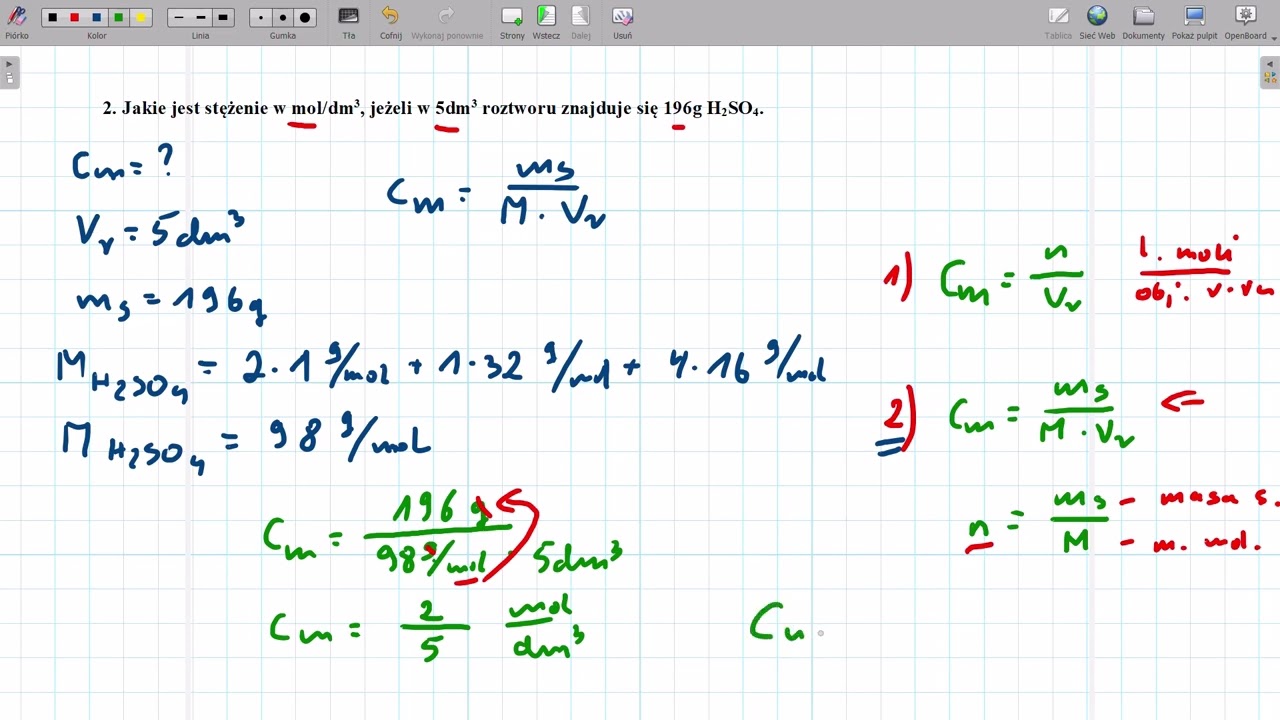 Pióro Kolor Linia Gumka Tła Cofnij Wykonaj ponownie Strony Wstecz Dalej Usuń Tablica Sieć Web Dokumenty Pokaż pulpit OpenBoard
2. Jakie jest stężenie w mol/dm³, jeżeli w 5dm³ roztworu znajduje się 196g H₂SO₄.
Cm = ?
Vr = 5dm³
ms = 196g
Cm = ms / M · Vr
M H₂SO₄ = 2·1 g/mol + 1·32 g/mol + 4·16 g/mol
M H₂SO₄ = 98 g/mol
Cm = 196 g / 98 g/mol · 5dm³
Cm = 2/5 mol/dm³
Cm
1) Cm = n / Vr l. moli / obj.
2) Cm = ms / M · Vr ⇐
n = ms / M - masa s. - m. mol.